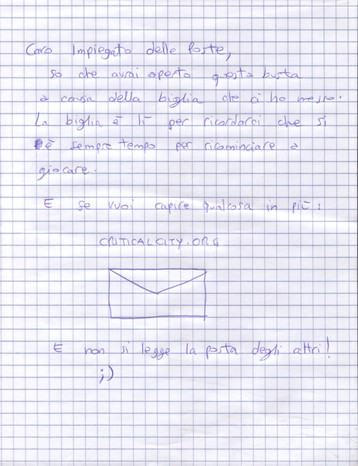 Caro Impiegato delle Poste,
so che avrai aperto questa busta
a causa della biglia che ci ho messo.
La biglia è lì per ricordarci che si
è sempre tempo per ricominciare a
giocare.
E se vuoi capire qualcosa in più:
CRITICALCITY.ORG
E non si legge la posta degli altri!
;)